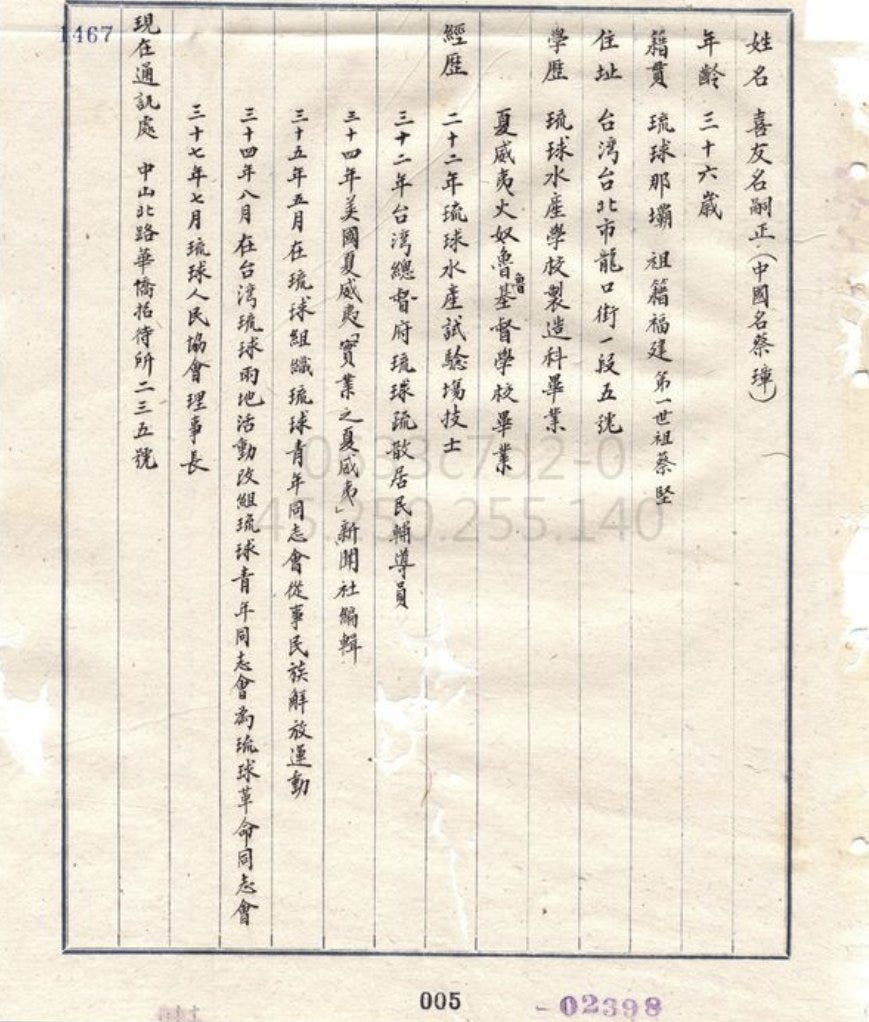 1467
姓名 喜友名嗣正(中國名蔡璋)
年齡 三十六歲
籍貫 琉球那壩 祖籍福建 第一世祖蔡堅
住址 台湾台北市龍口街一段五號
學歷 琉球水產學校製造科畢業
夏威夷火奴魯魯基督學校畢業
經歷 二十二年琉球水產試驗場技士
三十二年台湾總督府琉球疏散居民輔導員
三十四年美國夏威夷「實業之夏威夷」新聞社編輯
三十五年五月在琉球組織琉球青年同志會從事民族解放運動
三十四年八月在台湾琉球兩地活動改組琉球青年同志會為琉球革命同志會
三十七年七月琉球人民協會理事長
現在通訊處 中山北路華僑招待所二三五號
0633c7d2-0
45.250.255.140
005
-02398